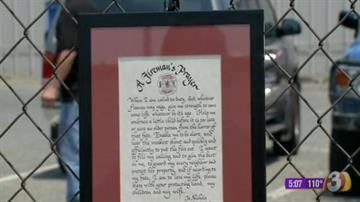 A Fireman's Prayer
When I am called to duty, God, wherever
flames may rage, give me strength to save
some life, whatever be its age. Help me
embrace a little child before it is too late
or save an older person from the horror of
that fate. Enable me to be alert, and
hear the weakest shout and quickly and
efficiently to put the fire out. I want
to fill my calling and to give the best
in me, to guard my every neighbor and
protect his property, and if according to
my fate, I am to lose my life, please
bless with your protecting hand, my
children and my wife.
5:07 110° 3